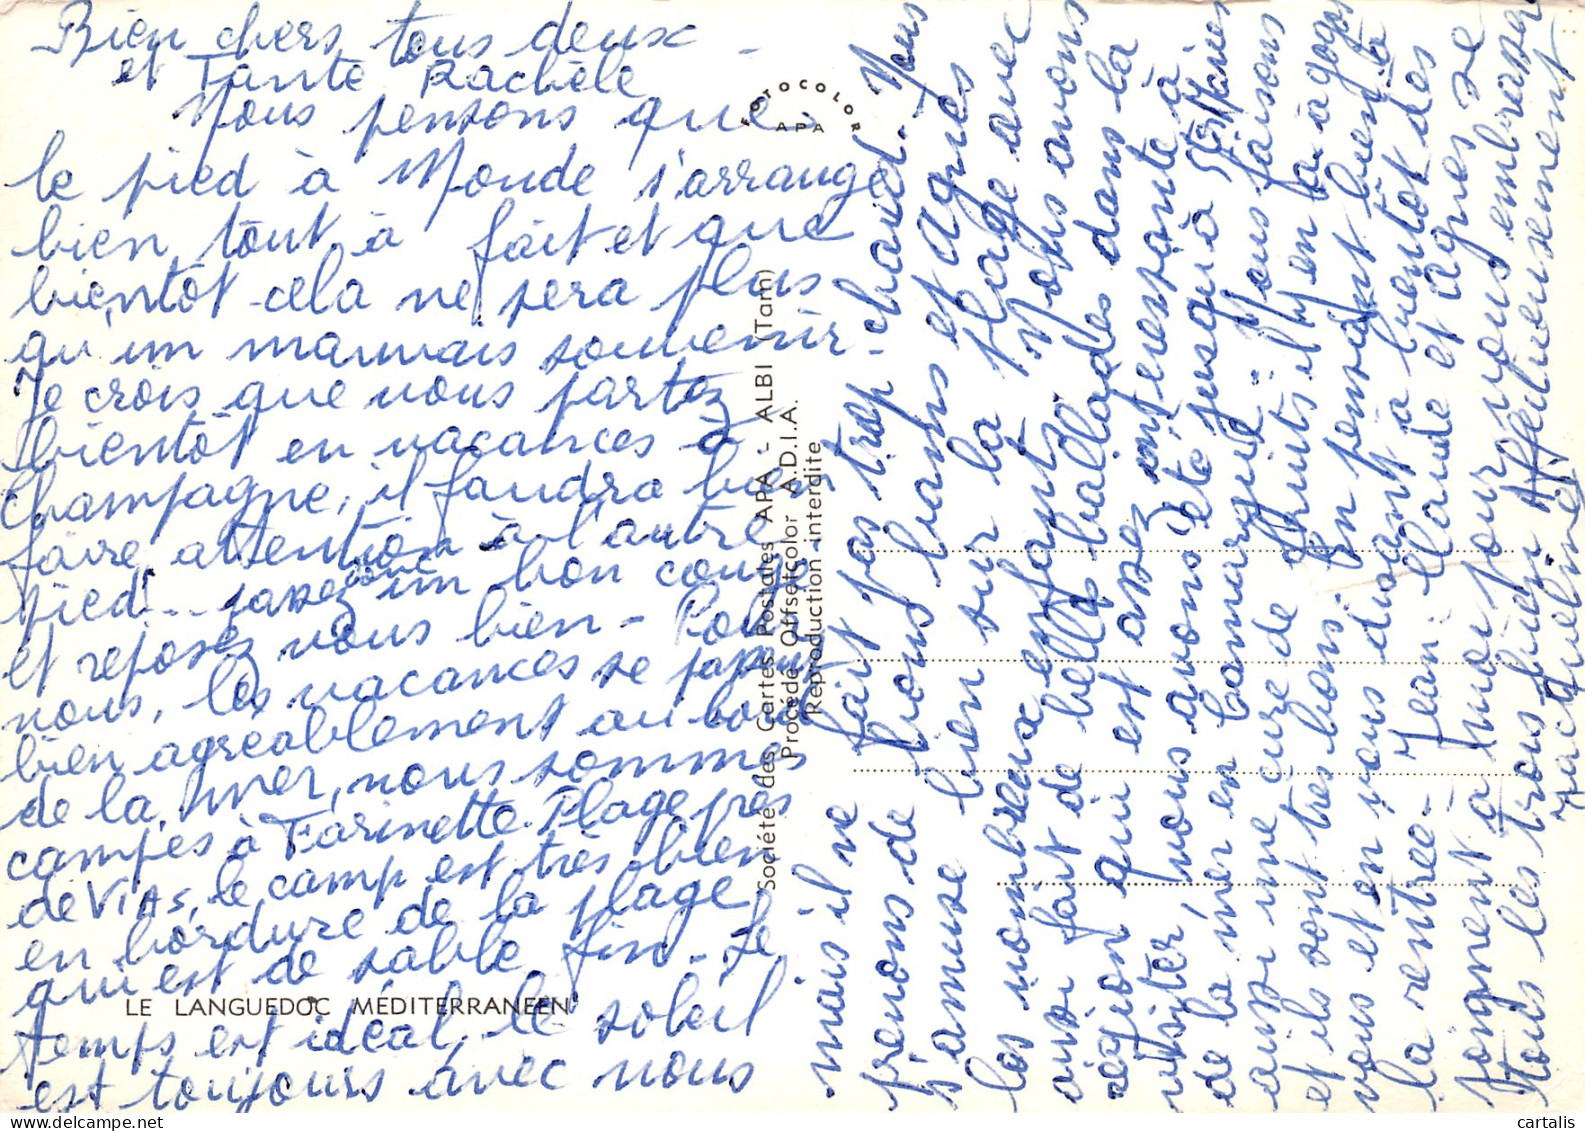 Bien chers tous deux -
et Tante Rachèle
Nous pensons que
le pied à Monde s'arrange
bien tout à fait et que
bientôt cela ne sera plus
qu'un mauvais souvenir -
Je crois que vous partez
bientôt en vacances à
Champagne, il faudra bien
faire attention à l'autre
pied... passez donc un bon congé
et reposez vous bien - Pour
nous, les vacances se passent
bien agréablement au bord
de la mer, nous sommes
campés à Farinette Plage près
de VIAS, le camp est très bien
en bordure de la plage
qui est de sable fin - Le
temps est idéal, le soleil
est toujours avec nous
mais il ne fait pas trop chaud. Nous
prenons de bons bains et Agnès
s'amuse bien sur la plage avec
les nombreux enfants. Nous avons
aussi fait de belles ballades dans la
région qui est assez intéressante à
visiter, nous avons été jusqu'à Stes Maries
de la mer en Camargue. Nous faisons
aussi une cure de fruits il y en a à gogo
et ils sont très bons. En pensant bien à
vous et en vous disant à bientôt dès
la rentrée - Jean-Claude et Agnès se
joignent à moi pour vous embrasser
tous les trois bien Affectueusement
Jacqueline
FOTOCOLOR
APA
Société des Cartes Postales APA - ALBI (Tarn)
Procédé Offsetcolor A.D.I.A.
Reproduction interdite
LE LANGUEDOC MÉDITERRANÉEN
cartalis